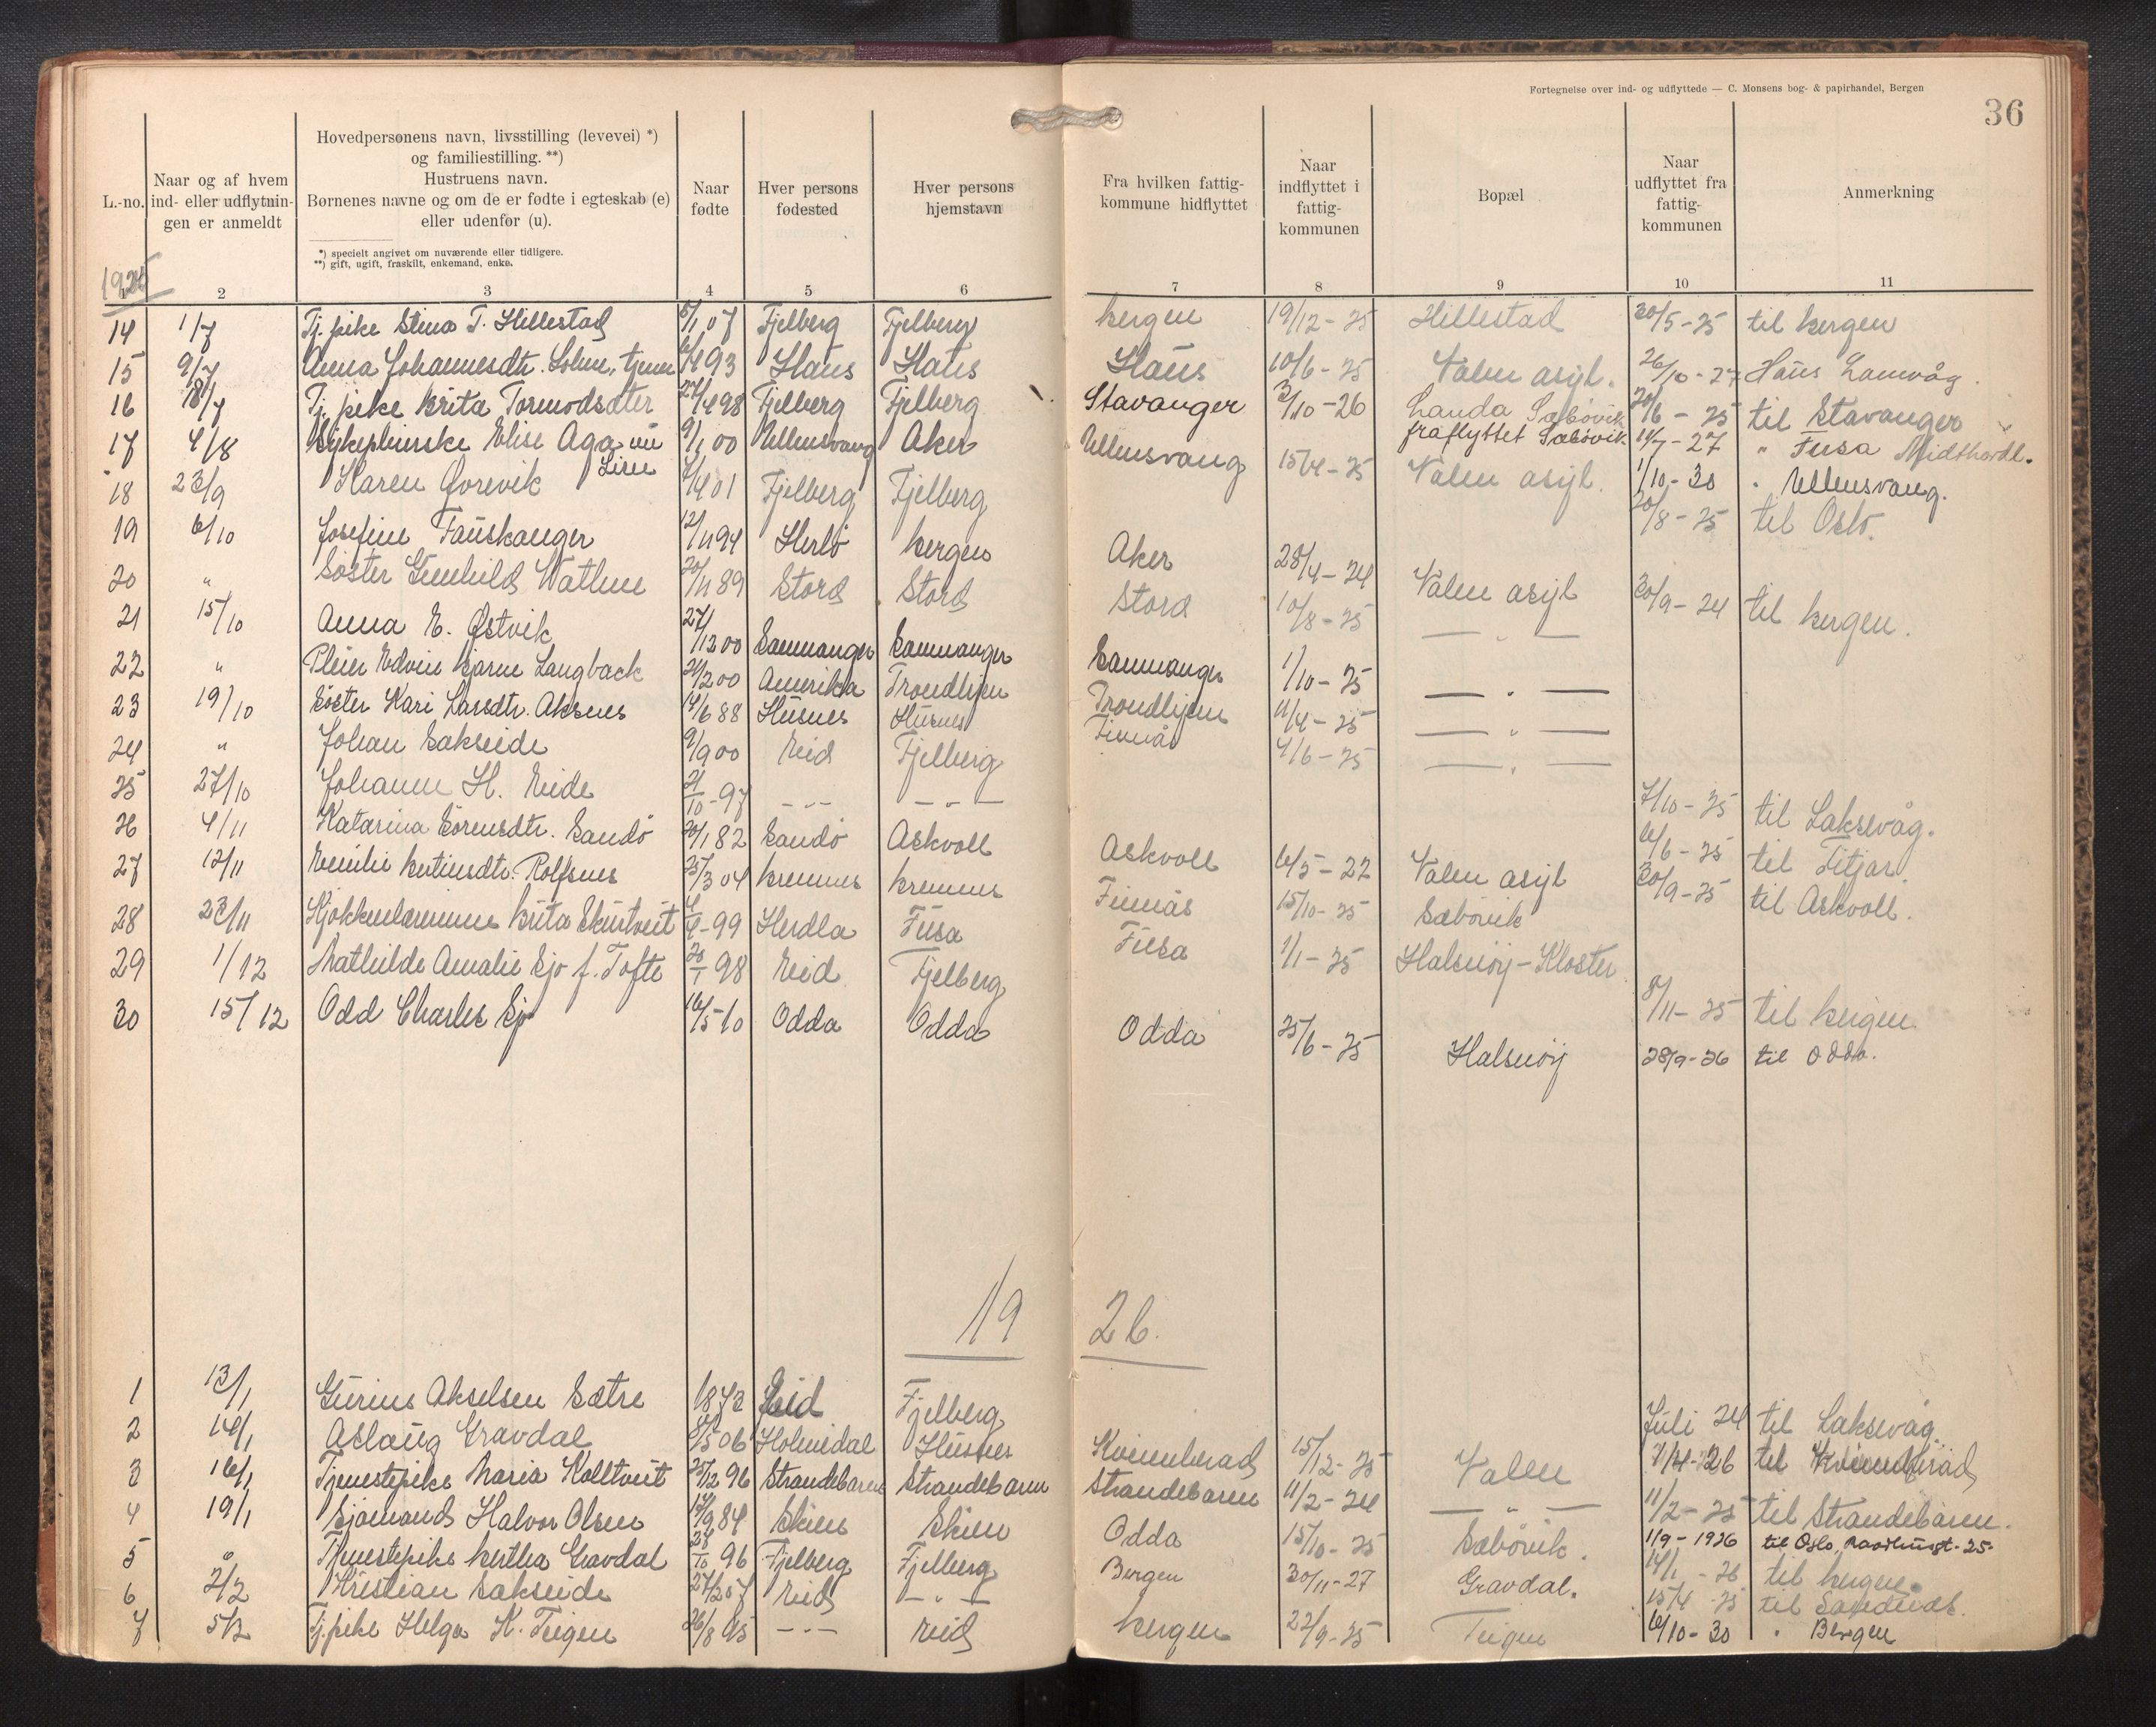 Fortegnelse over ind- og udflyttede — C. Monsens bog- & papirhandel, Bergen
36
L.-no.
Naar og af hvem
ind- eller udflytnin-
gen er anmeldt
Hovedpersonens navn, livsstilling (levevei) *)
og familiestilling. **)
Hustruens navn.
Børnenes navne og om de er fødte i egteskab (e)
eller udenfor (u).
*) specielt angivet om nuværende eller tidligere.
**) gift, ugift, fraskilt, enkemand, enke.
Naar
fødte
Hver persons
fødested
Hver persons
hjemstavn
Fra hvilken fattig-
kommune hidflyttet
Naar
indflyttet i
fattig-
kommunen
Bopæl
Naar
udflyttet fra
fattig-
kommunen
Anmerkning
1925
1 2 3 4 5 6 7 8 9 10 11
14 1/7 Tj. pike Stina T. Hillestad 07 Fjelberg Fjelberg Bergen 19/12-25 Hillestad 20/5-25 til Bergen
15 9/7 Anna Johannesdtr. 93 Haus Haus Haus 10/6-25 Valen asyl. 26/10-27 Haus
16 18/7 Tj. pike Brita Tormodsdter 27/4 98 Fjelberg Fjelberg Stavanger 3/10-26 Landa Sæbövik 20/6-25 til Stavanger
fraflyttet Sæbövik 14/7-27 " Fusa Midthordl.
17 4/8 Sykepleierske Elise Aga 9/1 00 Ullensvang Aker Ullensvang 15/4-25 Valen asyl. 1/10-30 " Ullensvang.
18 23/9 Karen Øvrevik 01 Fjelberg Fjelberg 20/8-25 til Oslo.
19 6/10 Josefine Fauskanger 12/11 94 Herlö Bergen Aker 28/4-24 Valen asyl 30/9-24 til Bergen.
20 " Söster Gunhild Watlem 20/11 89 Stord Stord Stord 10/8-25 — " —
21 15/10 Anna E. Østvik 27/12 00 Samnanger Samnanger Samnanger 1/10-25 — " —
22 " Pleier Edvin Bjarne Langback 20/2 00 Amerika Trondhjem Trondhjem 11/4-25 — " —
23 19/10 Söster Kari Larsdtr. Aksnes 14/6 88 Husnes Husnes Finnås 4/6-25 — " —
24 " Johan Sakseide 9/9 00 Eid Fjelberg 7/10-25 til Laksevåg.
25 27/10 Johanne H. Eide 21/10-97 — " — — " — 6/6-25 til Fitjar.
26 4/11 Katarina Sörensdtr. Sandö 20/1 82 Sandö Askvoll Askvoll 6/5-22 Valen asyl 30/9-25 til Askvoll.
27 12/11 Emilie Bertinsdtr. Rolfsnes 25/3 04 Bremnes Bremnes Finnås 15/10-25 Sæbövik
28 23/11 Brita 99 Herdla Fusa Fusa 1/1-25 Halsnöy-Kloster
29 1/12 Mathilde Amalie Sjo f. Tofte 20/1 98 Eid Fjelberg 8/11-25 til Bergen.
30 15/12 Odd Charles Sjo 16/5-10 Odda Odda Odda 25/6-25 Halsnöy 28/9-26 til Odda.
19 26.
1 13/1 Gurius Akselsen Sætre 1873 Eid Fjelberg Juli 24 til Laksevåg
2 14/1 Aslaug Gravdal 8/5 06 Holmedal Husnes Kvinnherad 15/12-25 Valen til Kvinnherad
3 16/1 Tjenestepike Maria Kolltveit 25/12 96 Strandebarm Strandebarm Strandebarm 11/2-24 — " — 11/2-25 til Strandebarm.
4 19/1 Sjömand Halvor Olsen 14/9 84 Skien Skien Odda 15/10-25 Sæbövik. 1/9-1926 til Oslo,
5 " Tjenestepike Bertha Gravdal 28/10 96 Fjelberg Fjelberg Bergen 30/11-27 Gravdal. 14/1-26 til Bergen.
6 2/2 Kristian Sakseide 27/2 07 Eid — " — 15/4-25 til
7 5/2 Tj.pike Helga K. Teigen 26/8 95 — " — Eid Bergen 22/9-25 Teigen 6/10-30 " Bergen